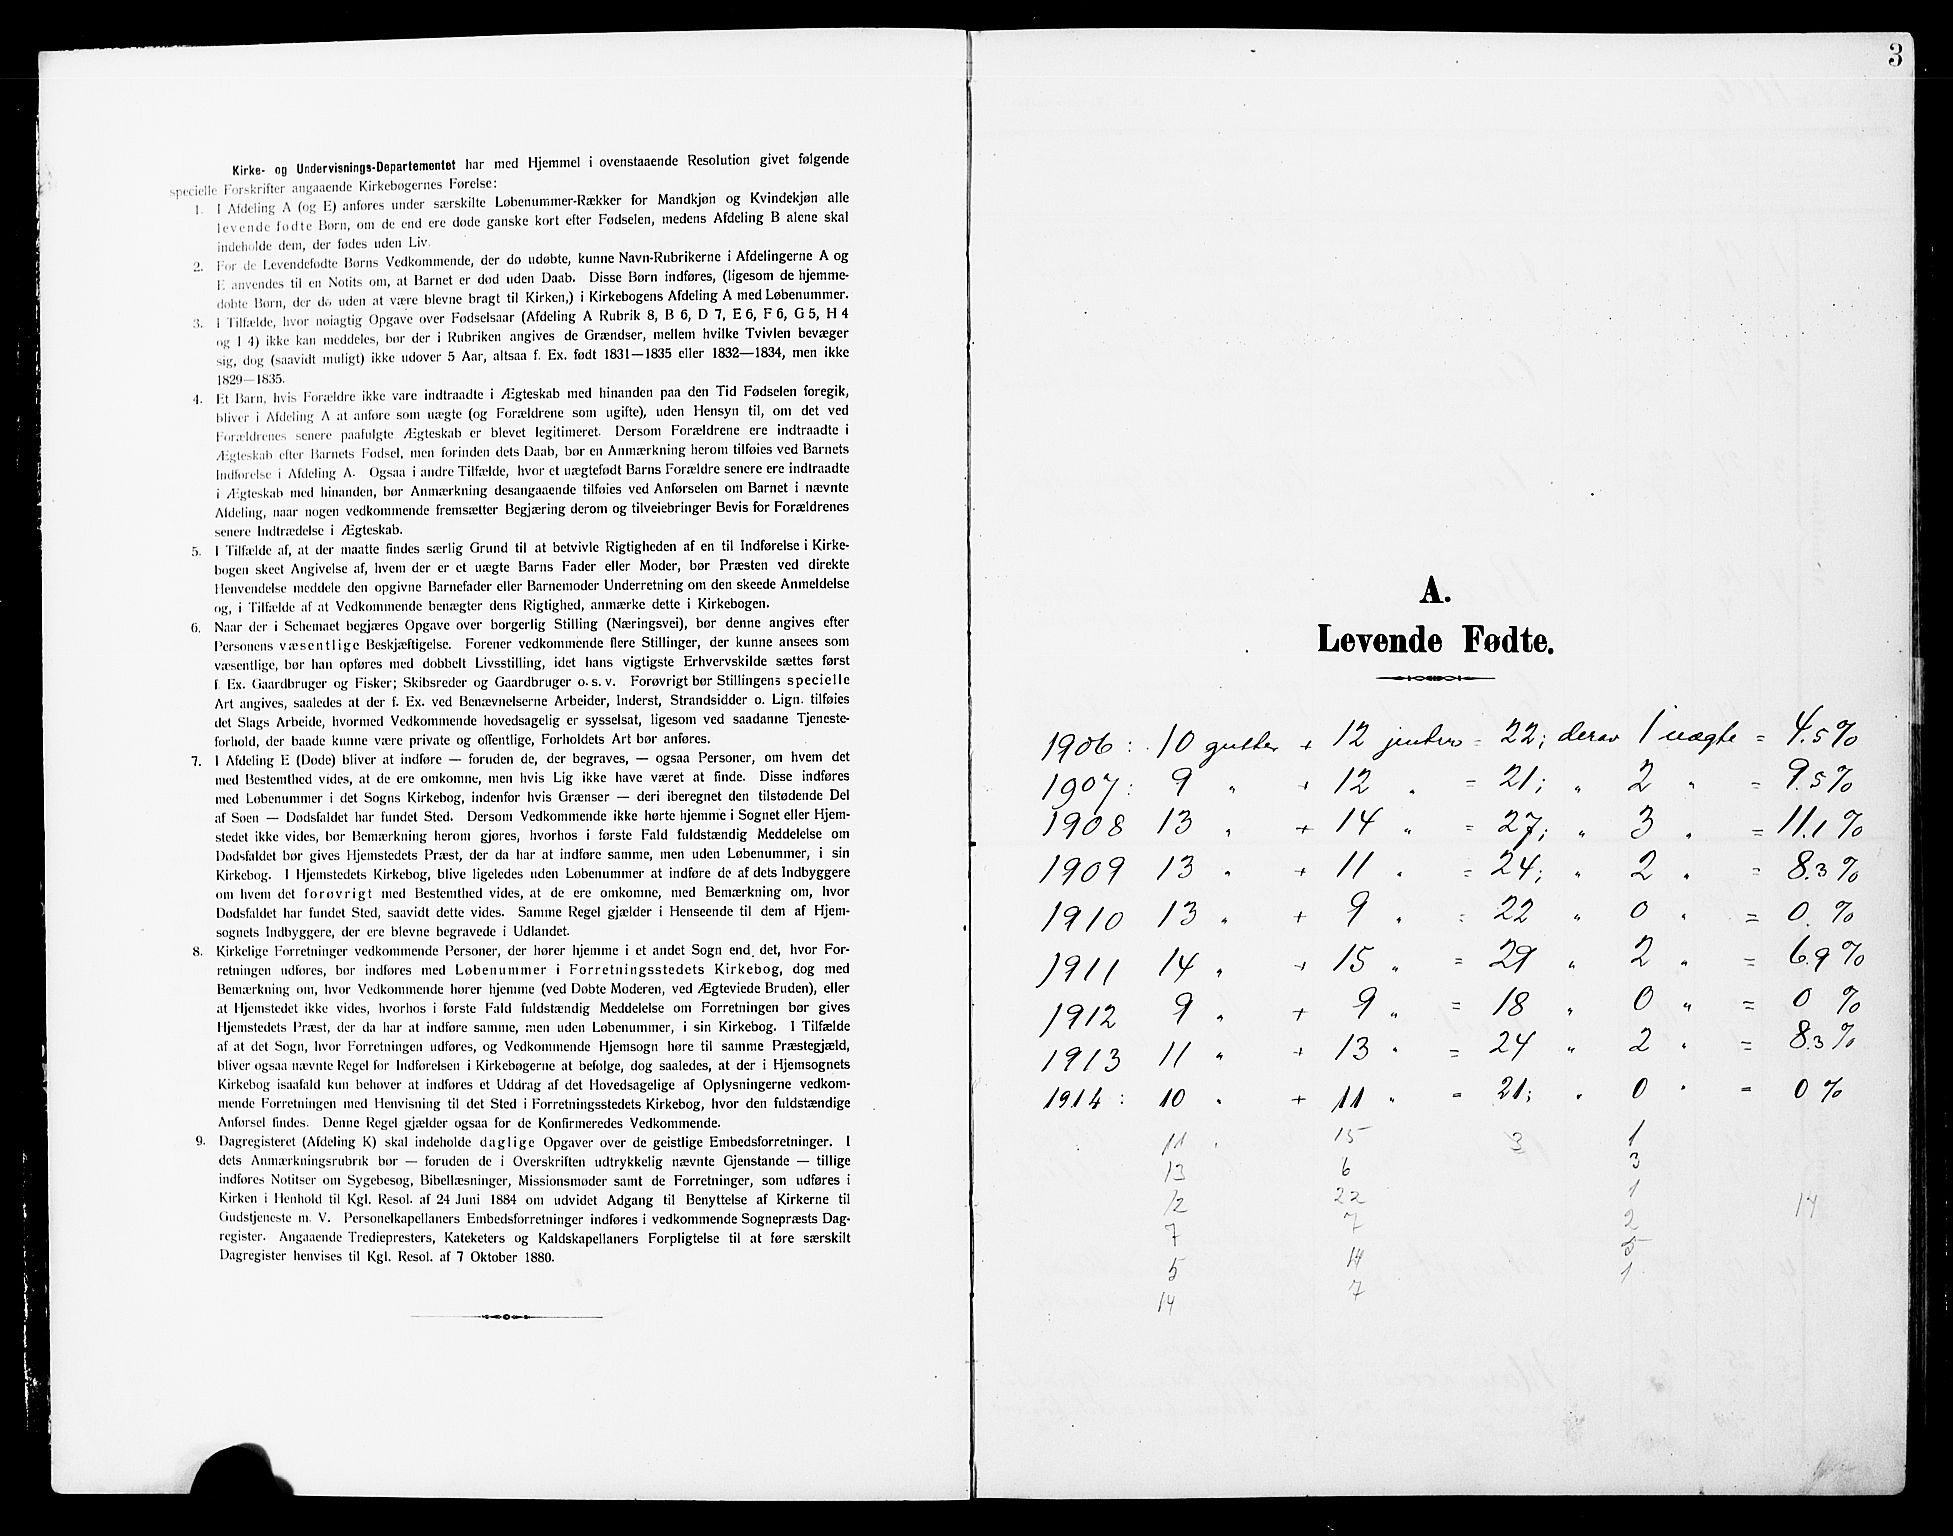 Kirke- og Undervisnings-Departementet har med Hjemmel i ovenstaaende Resolution givet følgende
specielle Forskrifter angaaende Kirkebøgernes Førelse:
1. I Afdeling A (og E) anføres under særskilte Løbenummer-Rækker for Mandkjøn og Kvindekjøn alle
levende fødte Børn, om de end ere døde ganske kort efter Fødselen, medens Afdeling B alene skal
indeholde dem, der fødes uden Liv.
2. For de Levendefødte Børns Vedkommende, der dø udøbte, kunne Navn-Rubrikerne i Afdelingerne A og
E anvendes til en Notits om, at Barnet er død uden Daab. Disse Børn indføres, (ligesom de hjemme-
døbte Børn, der dø uden at være blevne bragt til Kirken,) i Kirkebogens Afdeling A med Løbenummer.
3. I Tilfælde, hvor nøiagtig Opgave over Fødselsaar (Afdeling A Rubrik 8, B 6, D 7, E 6, F 6, G 5, H 4
og I 4) ikke kan meddeles, bør der i Rubriken angives de Grændser, mellem hvilke Tvivlen bevæger
sig, dog (saavidt muligt) ikke udover 5 Aar, altsaa f. Ex. født 1831—1835 eller 1832—1834, men ikke
1829—1835.
4. Et Barn, hvis Forældre ikke vare indtraadte i Ægteskab med hinanden paa den Tid Fødselen foregik,
bliver i Afdeling A at anføre som uægte (og Forældrene som ugifte), uden Hensyn til, om det ved
Forældrenes senere paafulgte Ægteskab er blevet legitimeret. Dersom Forældrene ere indtraadte i
Ægteskab efter Barnets Fødsel, men forinden dets Daab, bør en Anmærkning herom tilføies ved Barnets
Indførelse i Afdeling A. Ogsaa i andre Tilfælde, hvor et uægtefødt Barns Forældre senere ere indtraadte
i Ægteskab med hinanden, bør Anmærkning desangaaende tilføies ved Anførselen om Barnet i nævnte
Afdeling, naar nogen vedkommende fremsætter Begjæring derom og tilveiebringer Bevis for Forældrenes
senere Indtrædelse i Ægteskab.
5. I Tilfælde af, at der maatte findes særlig Grund til at betvivle Rigtigheden af en til Indførelse i Kirke-
bogen skeet Angivelse af, hvem der er et uægte Barns Fader eller Moder, bør Præsten ved direkte
Henvendelse meddele den opgivne Barnefader eller Barnemoder Underretning om den skeede Anmeldelse
og, i Tilfælde af at Vedkommende benægter dens Rigtighed, anmærke dette i Kirkebogen.
6. Naar der i Schemaet begjæres Opgave over borgerlig Stilling (Næringsvei), bør denne angives efter
Personens væsentlige Beskjæftigelse. Forener vedkommende flere Stillinger, der kunne ansees som
væsentlige, bør han opføres med dobbelt Livsstilling, idet hans vigtigste Erhvervskilde sættes først
f. Ex. Gaardbruger og Fisker; Skibsreder og Gaardbruger o. s. v. Forøvrigt bør Stillingens specielle
Art angives, saaledes at der f. Ex. ved Benævnelserne Arbeider, Inderst, Strandsidder o. Lign. tilføies
det Slags Arbeide, hvormed Vedkommende hovedsagelig er sysselsat, ligesom ved saadanne Tjeneste-
forhold, der baade kunne være private og offentlige, Forholdets Art bør anføres.
7. I Afdeling E (Døde) bliver at indføre — foruden de, der begraves, — ogsaa Personer, om hvem det
med Bestemthed vides, at de ere omkomne, men hvis Lig ikke have været at finde. Disse indføres
med Løbenummer i det Sogns Kirkebog, indenfor hvis Grænser — deri iberegnet den tilstødende Del
af Søen — Dødsfaldet har fundet Sted. Dersom Vedkommende ikke hørte hjemme i Sognet eller Hjem-
stedet ikke vides, bør Bemærkning herom gjøres, hvorhos i første Fald fuldstændig Meddelelse om
Dødsfaldet bør gives Hjemstedets Præst, der da har at indføre samme, men uden Løbenummer, i sin
Kirkebog. I Hjemstedets Kirkebog, blive ligeledes uden Løbenummer at indføre de af dets Indbyggere
om hvem det forøvrigt med Bestemthed vides, at de ere omkomne, med Bemærkning om, hvor
Dødsfaldet har fundet Sted, saavidt dette vides. Samme Regel gjælder i Henseende til dem af Hjem-
sognets Indbyggere, der ere blevne begravede i Udlandet.
8. Kirkelige Forretninger vedkommende Personer, der hører hjemme i et andet Sogn end det, hvor For-
retningen udføres, bør indføres med Løbenummer i Forretningsstedets Kirkebog, dog med
Bemærkning om, hvor Vedkommende hører hjemme (ved Døbte Moderen, ved Ægteviede Bruden), eller
at Hjemstedet ikke vides, hvorhos i første Fald fuldstændig Meddelelse om Forretningen bør gives
Hjemstedets Præst, der da har at indføre samme, men uden Løbenummer, i sin Kirkebog. I Tilfælde
af at det Sogn, hvor Forretningen udføres, og Vedkommende Hjemsogn høre til samme Præstegjæld,
bliver ogsaa nævnte Regel for Indførelsen i Kirkebøgerne at befølge, dog saaledes, at der i Hjemsognets
Kirkebog isaafald kun behøver at indføres et Uddrag af det Hovedsagelige af Oplysningerne vedkom-
mende Forretningen med Henvisning til det Sted i Forretningsstedets Kirkebog, hvor den fuldstændige
Anførsel findes. Denne Regel gjælder ogsaa for de Konfirmeredes Vedkommende.
9. Dagregisteret (Afdeling K) skal indeholde daglige Opgaver over de geistlige Embedsforretninger. I
dets Anmærkningsrubrik bør — foruden de i Overskriften udtrykkelig nævnte Gjenstande — tillige
indføres Notitser om Sygebesøg, Bibellæsninger, Missionsmøder samt de Forretninger, som udføres i
Kirken i Henhold til Kgl. Resol. af 24 Juni 1884 om udvidet Adgang til Benyttelse af Kirkerne til
Gudstjeneste m. V. Personelkapellaners Embedsforretninger indføres i vedkommende Sognepræsts Dag-
register. Angaaende Trediepresters, Kateketers og Kaldskapellaners Forpligtelse til at føre særskilt
Dagregister henvises til Kgl. Resol. af 7 Oktober 1880.
3
A.
Levende Fødte.
1906: 10 gutter + 12 jenter = 22; derav 1 uægte = 4.5 %
1907: 9 „ + 12 „ = 21; „ 2 „ = 9.5 %
1908 13 „ + 14 „ = 27; „ 3 „ = 11.1 %
1909 13 „ + 11 „ = 24; „ 2 „ = 8.3 %
1910 13 „ + 9 „ = 22 „ 0 „ = 0. %
1911 14 „ + 15 „ = 29 „ 2 „ = 6.9 %
1912 9 „ + 9 „ = 18 „ 0 „ = 0 %
1913 11 „ + 13 „ = 24 „ 2 „ = 8.3 %
1914: 10 „ + 11 „ = 21; „ 0 „ = 0 %
11 „ 15 3 1
13 6 3
12 22 1 14
7 7 2
5 14 5
14 7 1